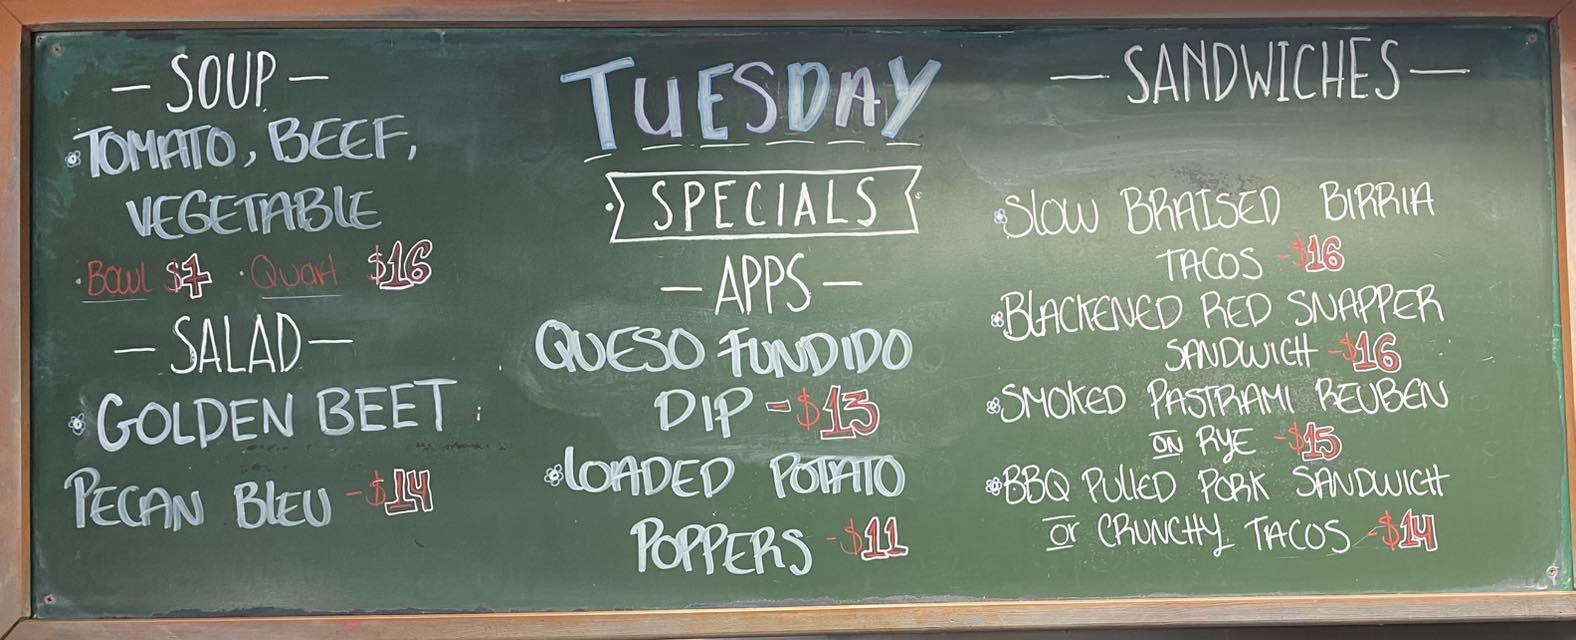 — SOUP —
TOMATO, BEEF,
VEGETABLE
· Bowl $7 · Quart $16
— SALAD —
GOLDEN BEET
PECAN BLEU - $14
TUESDAY
SPECIALS
— APPS —
QUESO FUNDIDO
DIP - $13
LOADED POTATO
POPPERS - $11
— SANDWICHES —
SLOW BRAISED BIRRIA
TACOS - $16
BLACKENED RED SNAPPER
SANDWICH - $16
SMOKED PASTRAMI REUBEN
ON RYE - $15
BBQ PULLED PORK SANDWICH
or CRUNCHY TACOS - $14